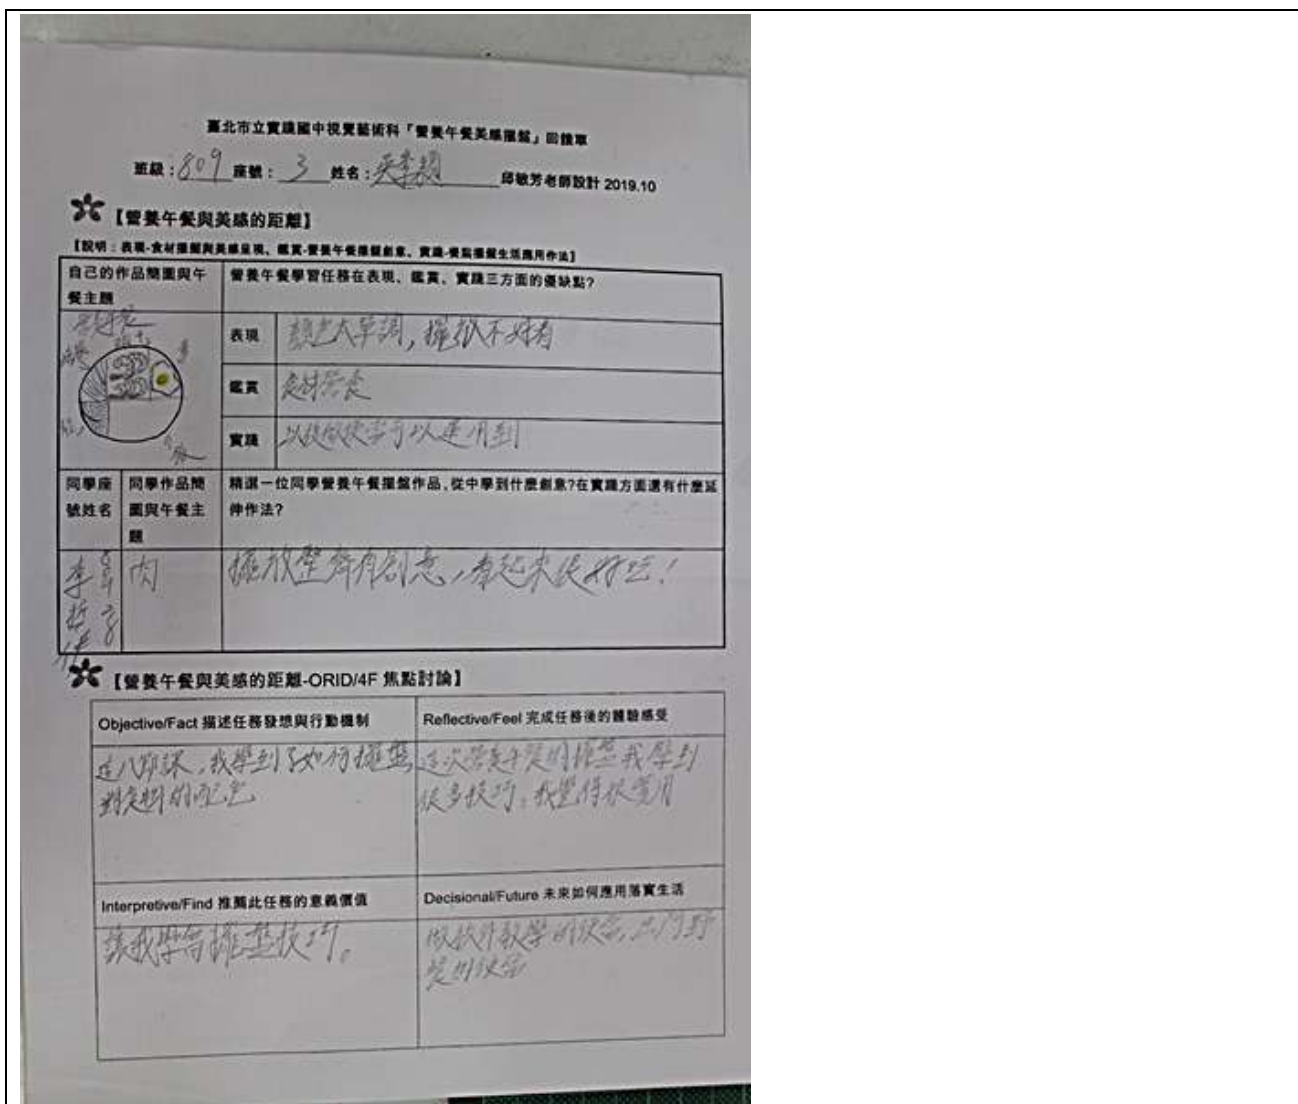 臺北市立實踐國中視覺藝術科「營養午餐美感擺盤」回饋單
班級：809 座號：3 姓名： 邱敏芳老師設計 2019.10
【營養午餐與美感的距離】
【說明：表現-食材擺盤與美感呈現、鑑賞-營養午餐擺盤創意、實踐-餐點擺盤生活應用作法】
自己的作品簡圖與午餐主題
營養午餐學習任務在表現、鑑賞、實踐三方面的優缺點?
表現 顏色太單調，擺放不好看
鑑賞 食材營養
實踐 以後做便當可以運用到
同學座號姓名
同學作品簡圖與午餐主題
精選一位同學營養午餐擺盤作品，從中學到什麼創意?在實踐方面還有什麼延
伸作法?
李
肉
擺放整齊有創意，看起來很好吃！
【營養午餐與美感的距離-ORID/4F 焦點討論】
Objective/Fact 描述任務發想與行動機制
這八節課，我學到了如何擺盤
對食料的配色
Reflective/Feel 完成任務後的體驗感受
這次營養午餐的擺盤我學到
很多技巧，我覺得很實用
Interpretive/Find 推薦此任務的意義價值
讓我學會擺盤技巧。
Decisional/Future 未來如何應用落實生活
做校外教學的便當，出門野
餐的便當